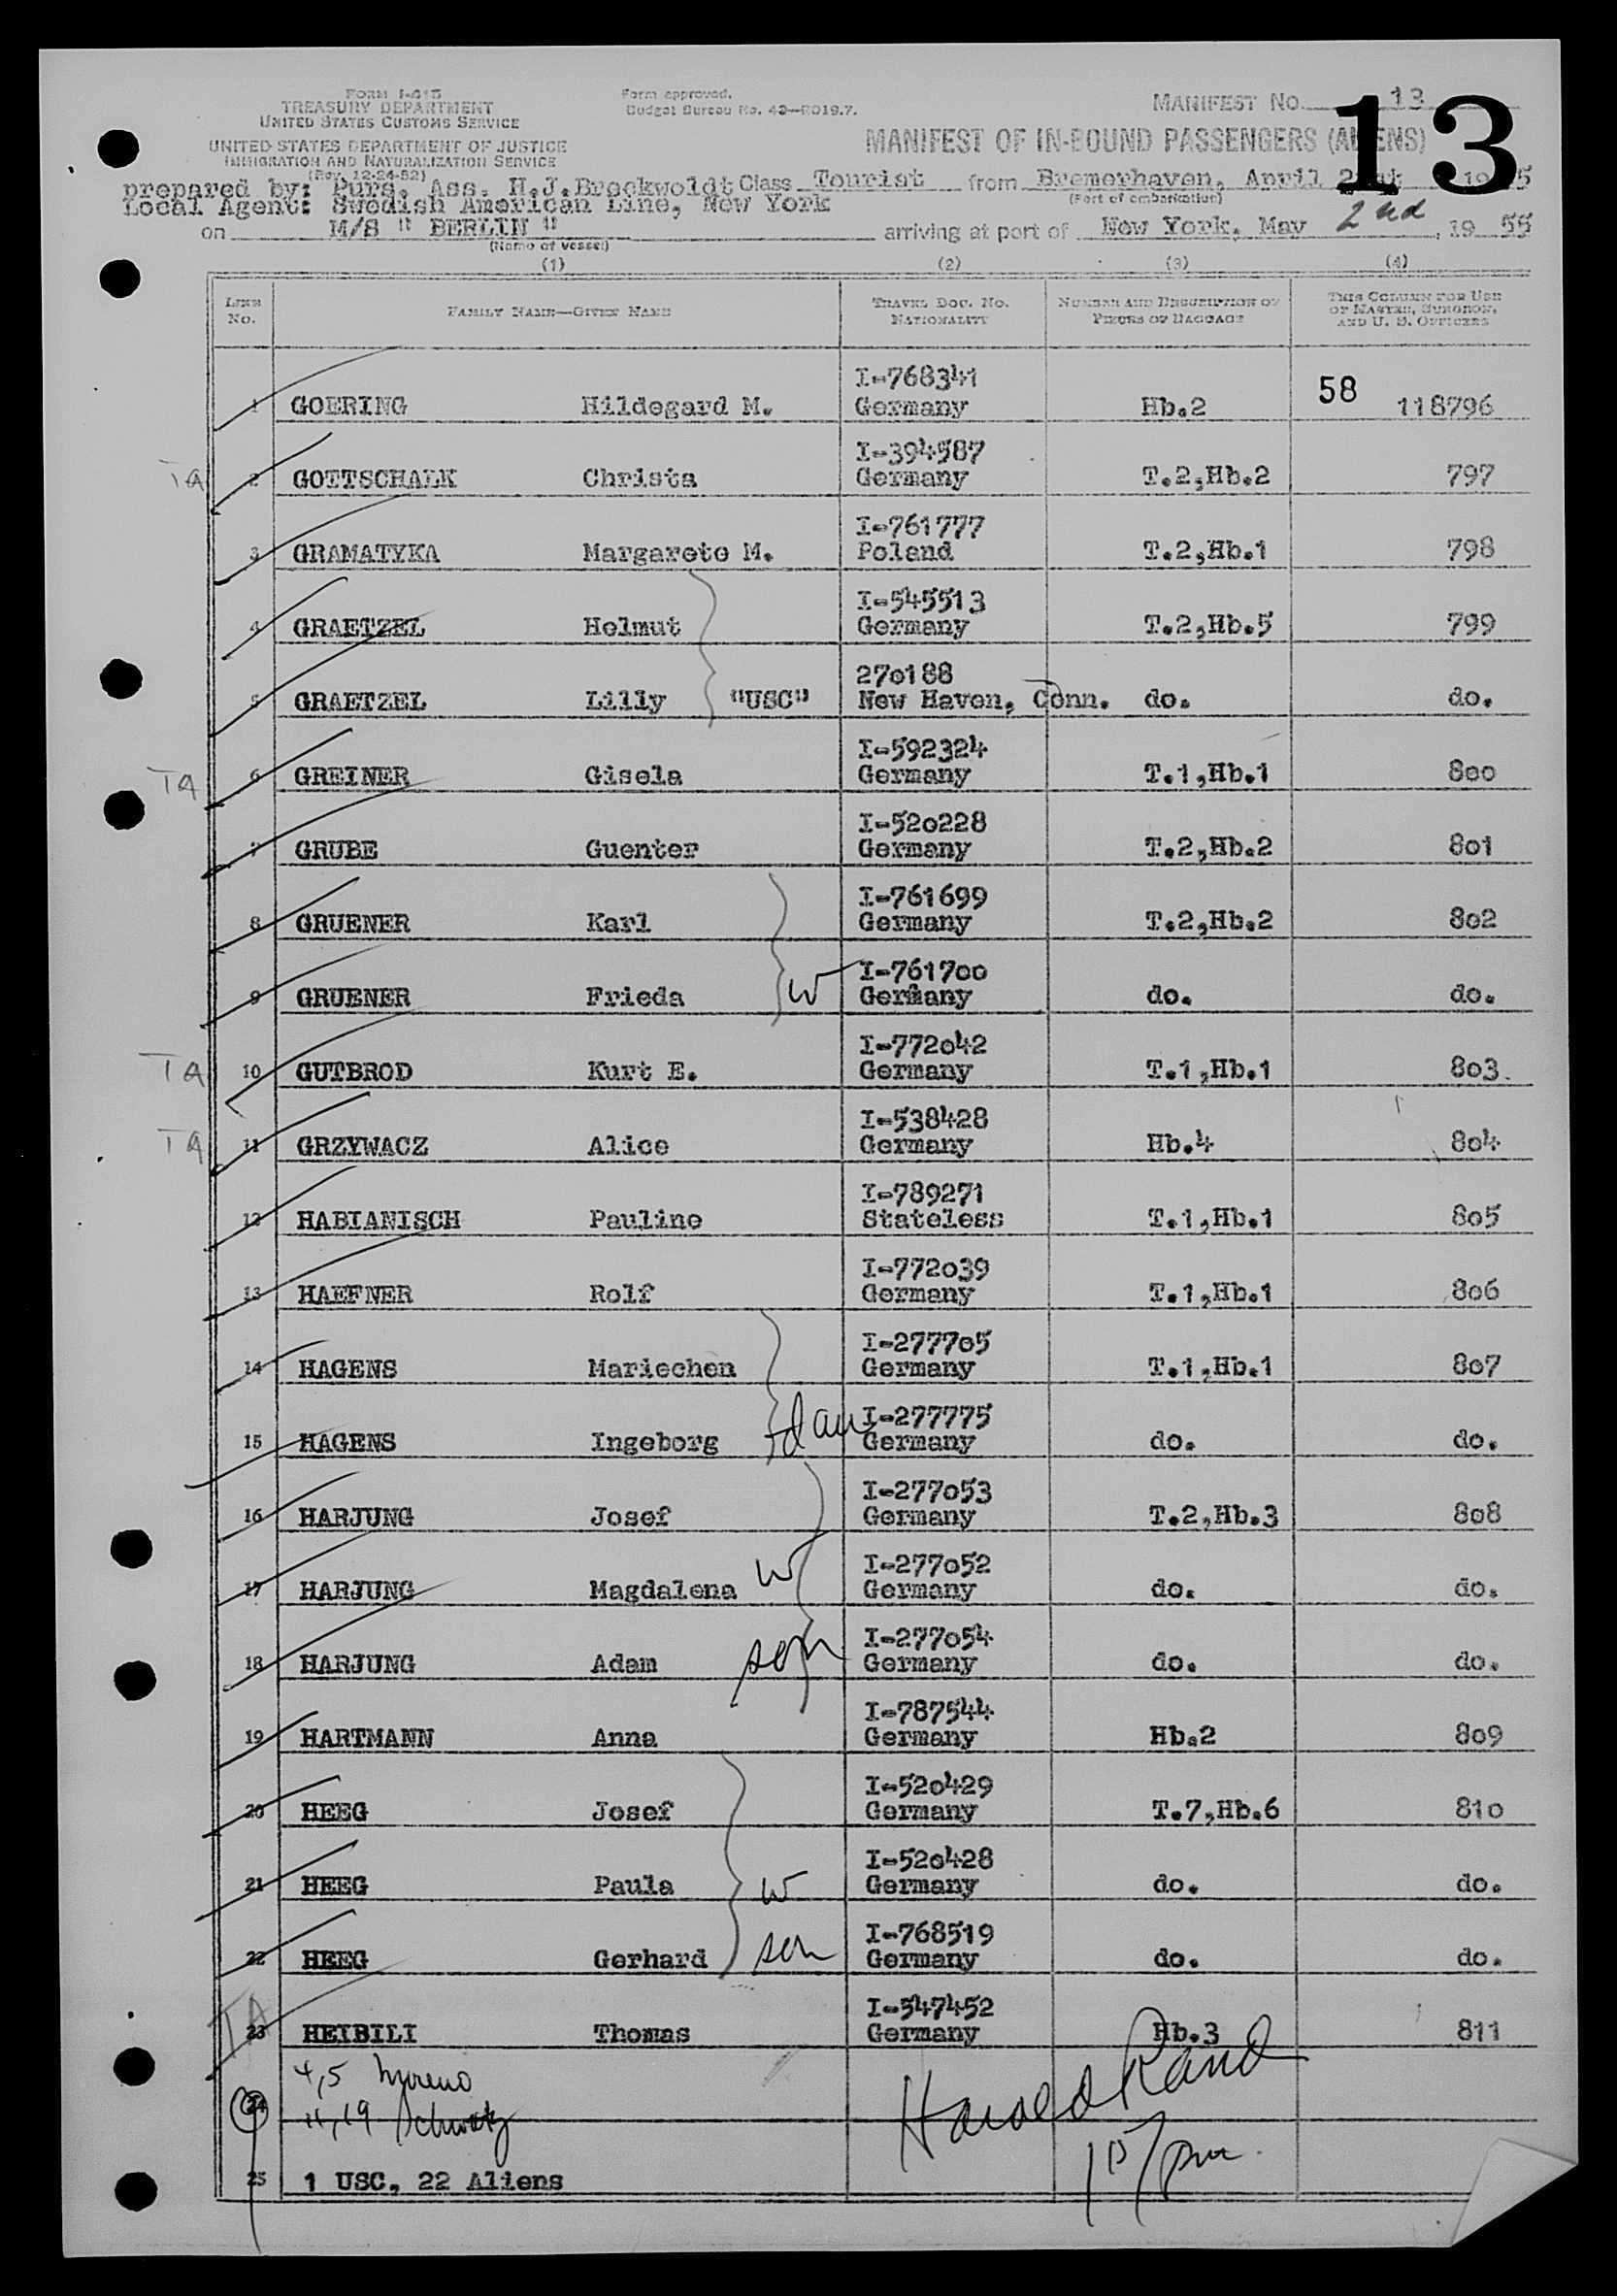 FORM I-415
TREASURY DEPARTMENT
UNITED STATES CUSTOMS SERVICE
UNITED STATES DEPARTMENT OF JUSTICE
IMMIGRATION AND NATURALIZATION SERVICE
(Rev. 12-24-52)
Form approved.
Budget Bureau No. 43—R019.7.
MANIFEST NO. 13
13
MANIFEST OF IN-BOUND PASSENGERS (ALIENS)
prepared by: Purs. Ass. H.J.Brockwoldt Class Tourist from Bremerhaven, April 19 5
(Port of embarkation)
Local Agent: Swedish American Line, New York
on M/S " BERLIN " arriving at port of New York, May 2nd, 19 55
(Name of vessel)
(1) (2) (3) (4)
LINE No. FAMILY NAME—GIVEN NAME TRAVEL DOC. NO. NATIONALITY NUMBER AND DESCRIPTION OF PIECES OF BAGGAGE THIS COLUMN FOR USE OF MASTER, SURGEON, AND U. S. OFFICERS
I-768341
1 GOERING Hildegard M. Germany Hb.2 58 118796
I-394587
TA 2 GOTTSCHALK Christa Germany T.2,Hb.2 797
I-761777
3 GRAMATYKA Margarete M. Poland T.2,Hb.1 798
I-545513
4 GRAETZEL Helmut Germany T.2,Hb.5 799
270188
5 GRAETZEL Lilly "USC" New Haven, Conn. do. do.
I-592324
TA 6 GREINER Gisela Germany T.1,Hb.1 800
I-520228
7 GRUBE Guenter Germany T.2,Hb.2 801
I-761699
8 GRUENER Karl Germany T.2,Hb.2 802
I-761700
9 GRUENER Frieda W Germany do. do.
I-772042
TA 10 GUTBROD Kurt E. Germany T.1,Hb.1 803
I-538428
TA 11 GRZYWACZ Alice Germany Hb.4 804
I-789271
12 HABIANISCH Pauline Stateless T.1,Hb.1 805
I-772039
13 HAEFNER Rolf Germany T.1,Hb.1 806
I-277705
14 HAGENS Mariechen Germany T.1,Hb.1 807
I-277775
15 HAGENS Ingeborg dau Germany do. do.
I-277053
16 HARJUNG Josef Germany T.2,Hb.3 808
I-277052
17 HARJUNG Magdalena W Germany do. do.
I-277054
18 HARJUNG Adam son Germany do. do.
I-787544
19 HARTMANN Anna Germany Hb.2 809
I-520429
20 HEEG Josef Germany T.7,Hb.6 810
I-520428
21 HEEG Paula W Germany do. do.
I-768519
22 HEEG Gerhard son Germany do. do.
I-547452
TA 23 HEIBILI Thomas Germany Hb.3 811
4,5 Moreno
24 11,19 Schwartz Harold Rand
25 1 USC, 22 Aliens